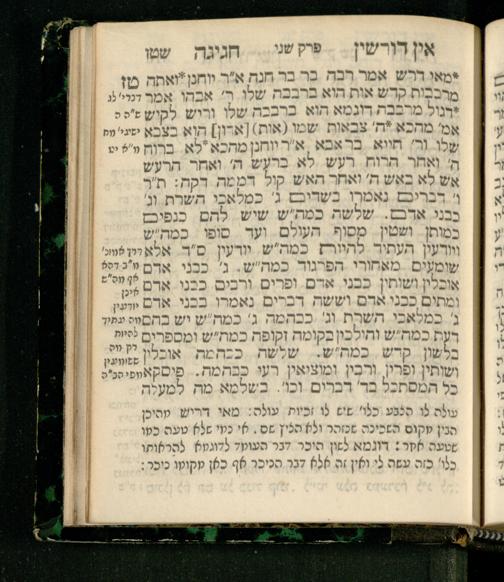 אין דורשין פרק שני חגיגה שטו
*מאי דרש אמר רבה בר בר חנה א"ר יוחנן *ואתה
טז
מרבבות קדש אות הוא ברבבה שלו ר' אבהו אמר
*דגול מרבבה דוגמא הוא ברבבה שלו וריש לקיש
אמ' מהכא *ה' צבאות שמו (אות) [אדון] הוא בצבא
שלו ור' חייא בר אבא א"ר יוחנן מהכא *לא ברוח
ה' ואחר הרוח רעש לא ברעש ה' ואחר הרעש
אש לא באש ה' ואחר האש קול דממה דקה: ת"ר
ו' דברים נאמרו בשדים ג' כמלאכי השרת וג'
כבני אדם. שלשה כמה"ש שיש להם כנפים
כמותן ושטין מסוף העולם ועד סופו כמה"ש
ויודעין העתיד להיות כמה"ש יודעין ס"ד אלא
שומעים מאחורי הפרגוד כמה"ש. ג' כבני אדם
אוכלין ושותין כבני אדם ופרים ורבים כבני אדם
ומתים ככני אדם וששה דברים נאמרו בבני אדם
ג' כמלאכי השרת וג' כבהמה ג' כמה"ש יש בהם
דעת כמה"ש והולכין בקומה זקופה כמה"ש ומספרים
בלשון קדש כמה"ש. שלשה כבהמה אוכלין
ושותין ופרין ורבין ומוציאין רעי כבהמה. פיסקא
כל המסתכל בד' דברים וכו'. בשלמא מה למעלה
דברי' לג
ש"ה ה
ישעי' מח
מ"א יט
מ"ב דהא
אף מה"ש
אינן
יודעין
להיות
רק מה
ששומעין
עולה לו הלבע כלו' שש לו זכיות עולה: מאי דריש מהיכן
הבין מקום השכינה שנזהר ולא הציץ שם. אי נמי שלא טעה כמו
שטעה אחר: דוגמא לשון היכר דבר העומד לדוגמא להראותו
כלו' כזה עשה לי ואין זה אלא דבר הניכר אף כאן מקומו ניכר: